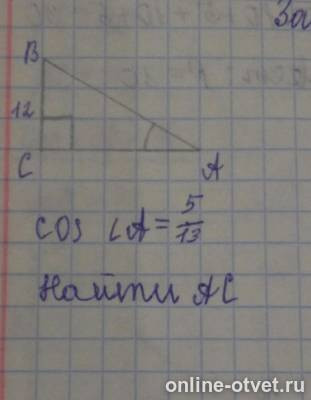 За
B
12
C
A
cos ∠A = 5/13
Найти AC
online-otvet.ru